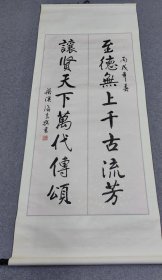 丙戌年春
至德無上千古流芳
讓賢天下萬代傳頌